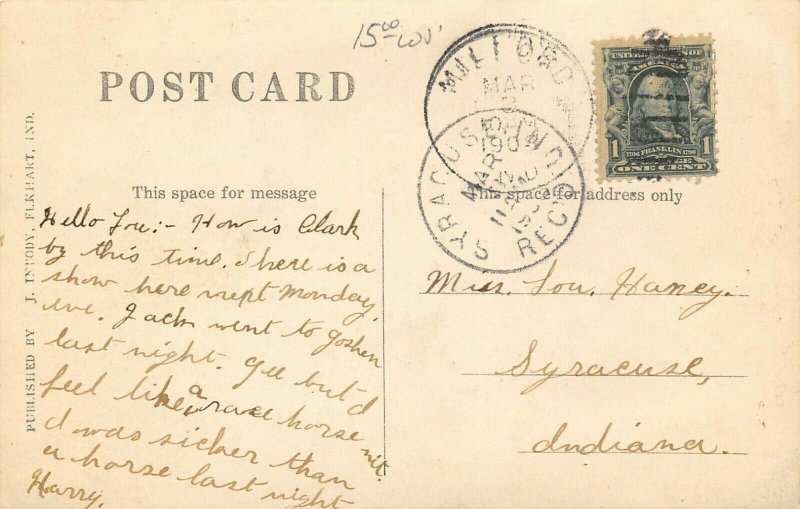 15.00
POST CARD
PUBLISHED BY J. INBODY, ELKHART, IND.
MILFORD
MAR
3
190
SYRACUSE, IND.
MAR
REC'D
UNITED STATES OF AMERICA
1706 FRANKLIN 1790
1 1
ONE CENT
This space for message
This space for address only
Hello Lou:- How is Clark
by this time. There is a
show here next Monday
eve. Jack went to goshen
last night. Gee but I'd
feel like a race horse nit.
I was sicker than
a horse last night
Harry.
Miss. Lou. Haney.
Syracuse,
Indiana.